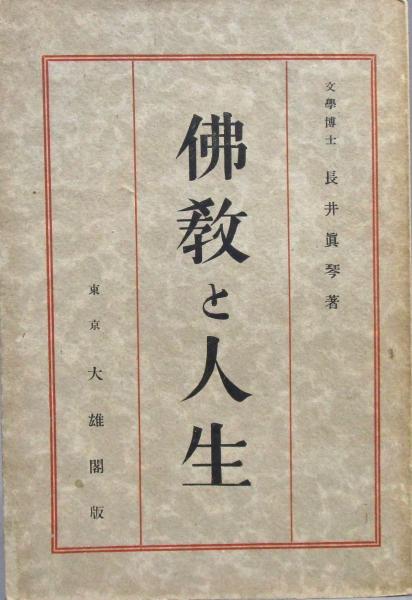 文學博士 長井眞琴著
佛教と人生
東京 大雄閣版